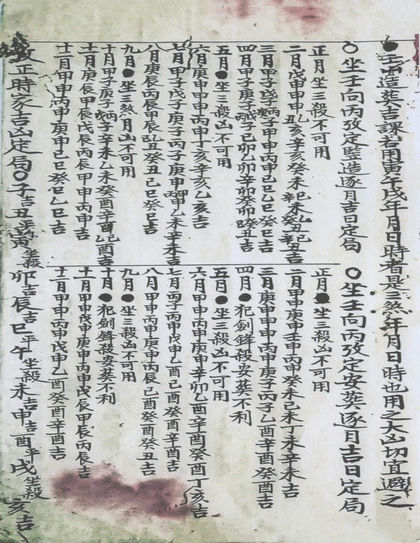 ●壬山造葬吉課若用寅午戌年月日時者是三煞年月日時也用之大凶切宜避之
〇坐壬向丙改定豎造逐月吉日定局
正月●坐三殺不可用
二月戊申甲申乙亥辛亥癸未
三月甲子丙子甲申丙申乙巳癸巳吉
四月甲子庚子乙卯辛卯癸卯癸丑吉
五月●坐三殺凶不可用
六月庚申甲申丙申丁亥辛亥乙亥吉
七月甲子戊子庚子丙子庚申乙未辛未吉
八月庚辰丙辰甲辰乙丑癸丑乙巳癸巳吉
九月●坐三煞月凶不可用
十月甲子庚子丙子乙未癸酉辛酉吉
十一月庚辰甲辰戊辰丙辰甲申丙申吉
十二月甲申丙申庚申己巳癸巳乙巳吉
〇坐壬向丙改定安葬逐月吉日定局
正月●坐三殺凶不可用
二月甲申庚申壬申丙申癸未己未丁未辛未吉
三月庚申甲申丙申庚子丙子乙酉癸酉吉
四月●犯劍鋒殺安葬不利
五月●坐三殺凶不可用
六月甲申丙申庚申辛卯乙酉辛酉癸酉丁亥吉
七月丙子戊申乙酉己酉癸酉辛酉吉
八月甲申丙申丙辰己酉癸酉癸丑吉
九月●坐三殺凶不可用
十月●犯劍鋒殺安葬不利
十一月甲申丙申庚申戊辰甲辰丙辰吉
十二月甲申丙申戊申乙酉癸酉辛酉吉
改正時家吉凶定局〇子吉丑寅卯吉辰吉巳平午坐殺未吉申吉酉平戌坐殺亥吉